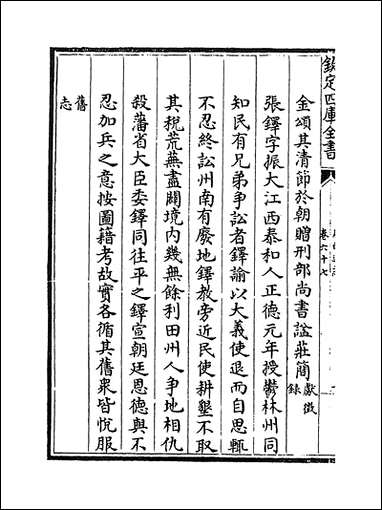 欽定四庫全書
卷六十七
金頌其清節於朝贈刑部尚書諡莊簡獻徵錄
張鐸字振大江西泰和人正德元年授鬱林州同
知民有兄弟爭訟者鐸諭以大義使退而自思輒
不忍終訟州南有廢地鐸教旁近民使耕墾不取
其稅荒蕪盡闢境内幾無餘利田州人爭地相仇
殺藩省大臣委鐸同往平之鐸宣朝廷恩德與不
忍加兵之意按圖籍考故實各循其舊衆皆悅服
舊志